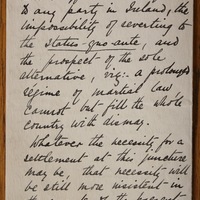 to any party in Ireland, the
impossibility of reverting to
the status-quo-ante, and
the prospect of the sole
alternative, viz: a prolonged
regime of martial law,
cannot but fill the whole
country with dismay.
Whatever the necessity for a
settlement at this juncture
may be, that necessity will
be still more insistent in
the of the present